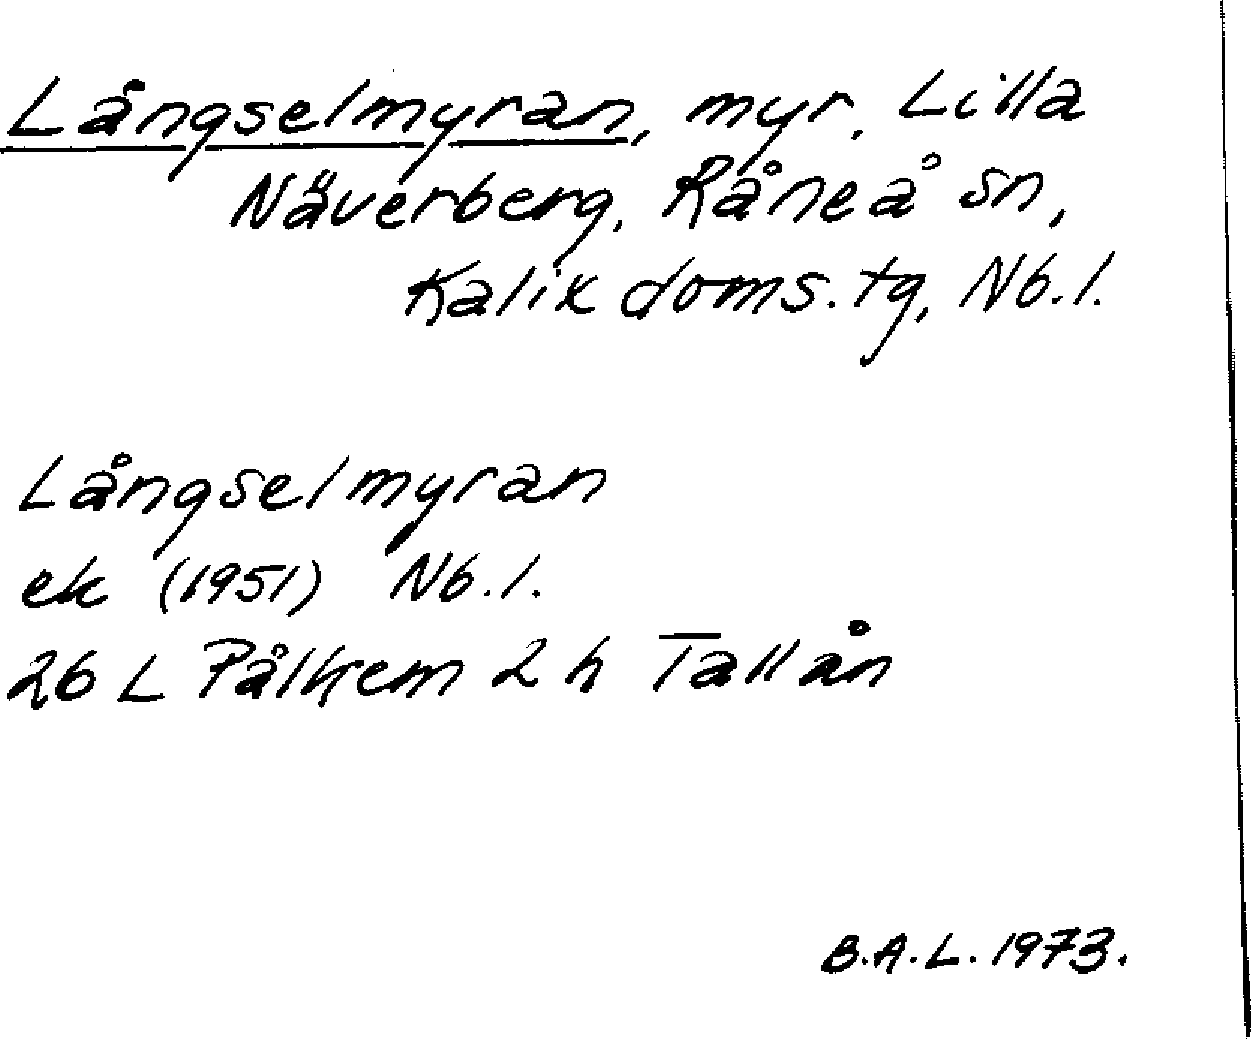 Långselmyran, myr, Lilla
Näverberg, Råneå sn,
Kalix doms. tg, Nb. l.
Långselmyran
ek (1951) Nb. l.
26 L Pålkem 2 h Tallån
B.A.L. 1973.